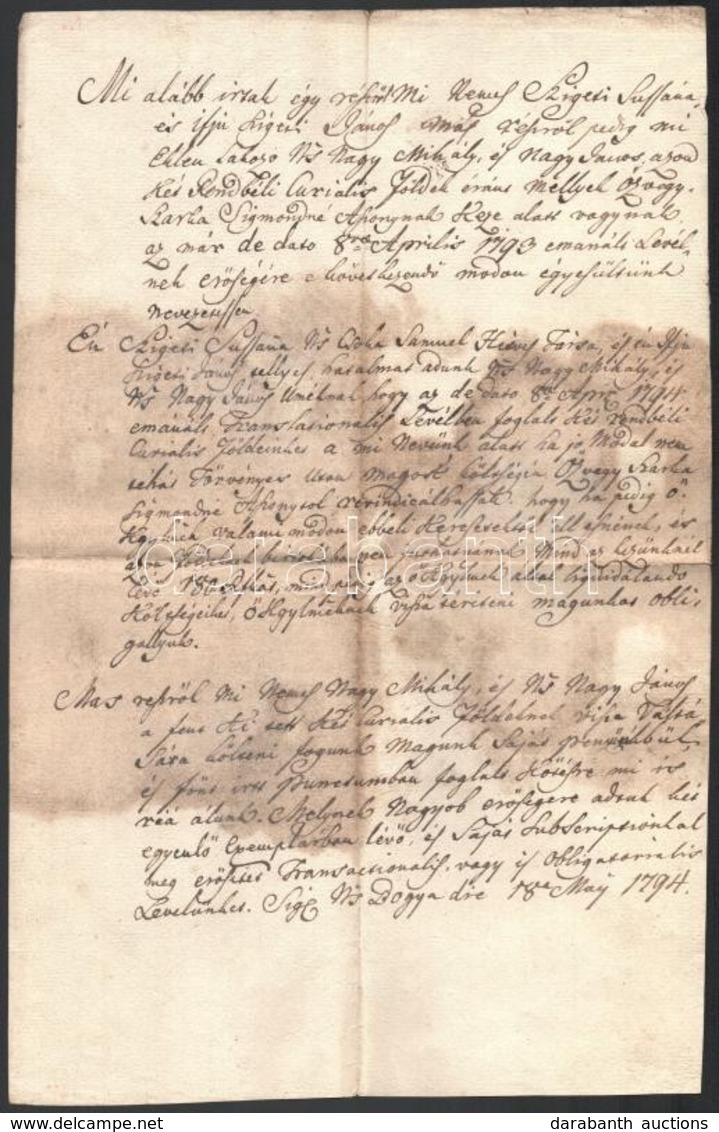 Mi alább irtak égy részről Mi Nemes Szigeti Sussána
és ifjú Szigeti János más részről pedig mi
Ekleu Lakozo Ns Nagy Mihály, és Nagy János, azon
két Rendbéli Curialis Földek eránt mellyek Özvegy
Szarka Sigmondné Aszonynak Keze alatt vagynak
az már de dato 8va Aprilis 1793 emanált Levél-
nek erősségére e következendő modon égyesültünk
nevezetessen
Én Szigeti Sussána Ns Csoka Samuel Hitves Társa, és én Ifju
Szigeti János tellyes hatalmat adunk Ns Nagy Mihály, és
Ns Nagy János Uraiméknak hogy az de dato 8a Apr. 1794
emanált Translasionalis Levélben foglalt két rendbéli
Curialis Földeinket a mi Nevünk alatt ha jo Modal nem
tehát Törvényes Uton magok költségén Özvegy Szarka
Sigmondné Aszonytol revindicálhassák. hogy ha pedig ő
Kgylmek valami modon ebbeli keresetektől el esnének, és
azon Földeknek birtokában nem juthatnának Mind az kezünknél
lévő 18 mind pedig az ő Kgylmek által liquidálando
Költségeiket, ő Kgylmeknek vissza téríteni magunkat obli-
gallyuk.
Mas részről mi Nemes Nagy Mihály, és Ns Nagy János
a fent ki tett két Curialis Földeknek vissza Váltá-
sára költeni fogunk magunk Saját pénzünkbül
és fönt irtt punctumban foglalt kötésre mi is
reá álunk. Melynek Nagyob erősségére adtuk két
egyenlő Exemplarban lévő, és Saját Subscriptionkal
meg erősített Transactionalis, vagy is Obligatorialis
Levelünket. Sigl Ns Dogya die 18a Maÿ 1794.
darabanth
darabanth auctions